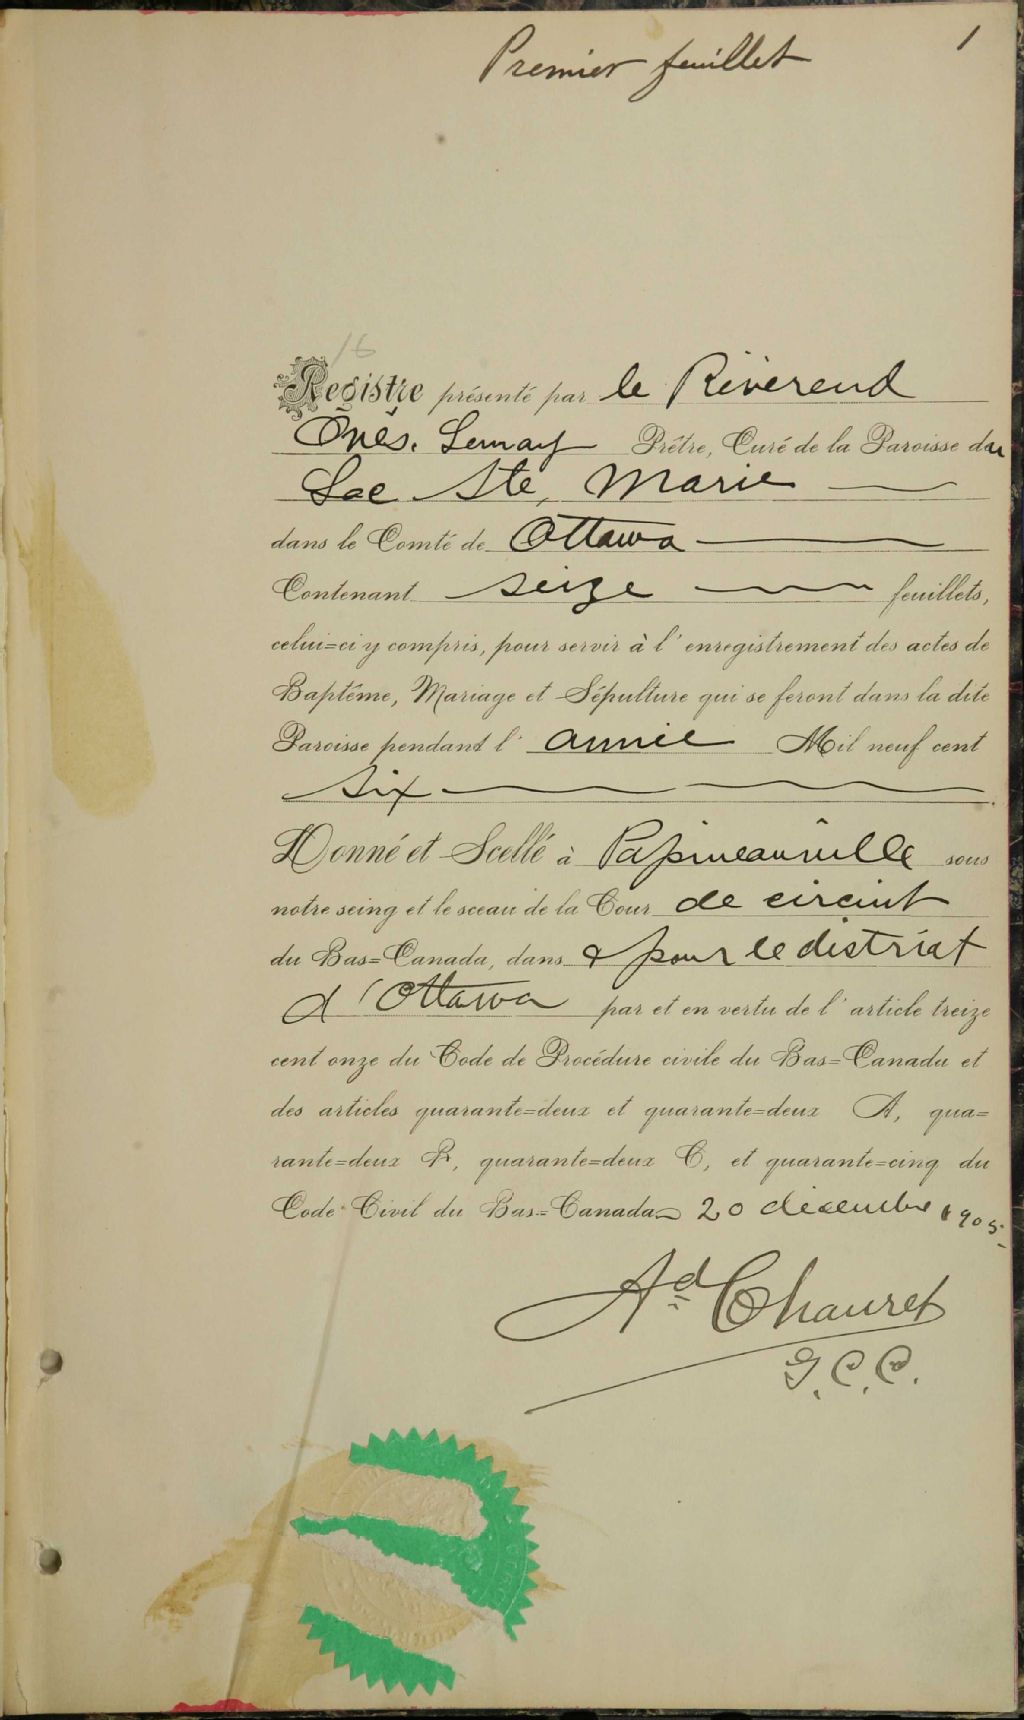 Premier feuillet
1
16
Registre présenté par le Révérend
Onés. Lemay Prêtre, Curé de la Paroisse du
Lac Ste, Marie
dans le Comté de Ottawa
Contenant seize feuillets,
celui=ci y compris, pour servir à l'enregistrement des actes de
Baptême, Mariage et Sépulture qui se feront dans la dite
Paroisse pendant l'année Mil neuf cent
six
Donné et Scellé à Papineauville sous
notre seing et le sceau de la Cour de circuit
du Bas=Canada, dans & pour le district
d'Ottawa par et en vertu de l'article treize
cent onze du Code de Procédure civile du Bas=Canada et
des articles quarante=deux et quarante=deux A, qua=
rante=deux B, quarante=deux C, et quarante=cinq du
Code Civil du Bas=Canada 20 décembre 1905
Ad Chauret
G.C.C.